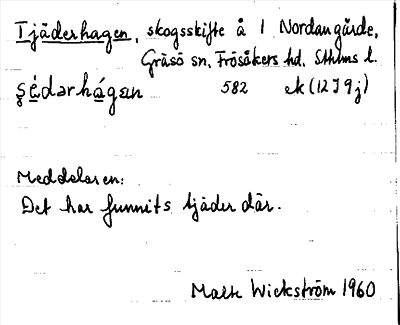 Tjäderhagen, skogsskifte å 1 Nordangärde,
Gräsö sn, Frösåkers hd, Sthlms l.
582 ek (12J9j)
Meddelaren:
Det har funnits tjäder där.
Malte Wickström 1960